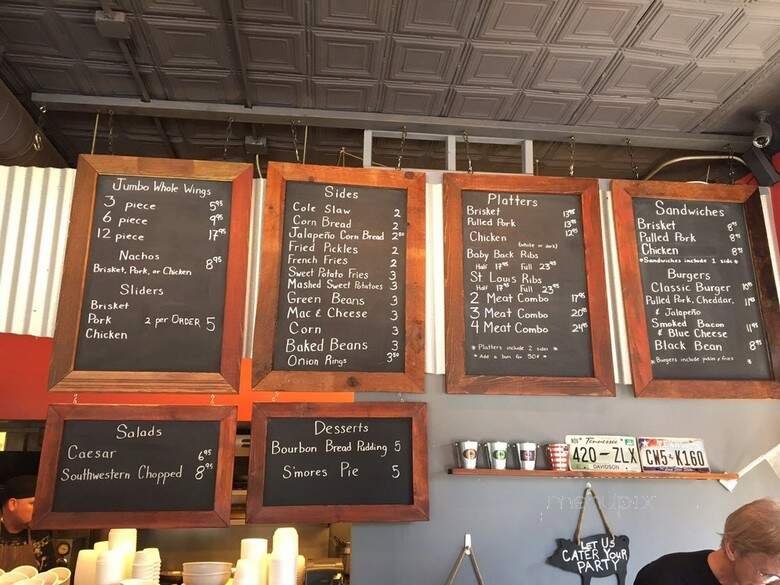 Jumbo Whole Wings
3 piece 5⁹⁵
6 piece 9⁹⁵
12 piece 17⁹⁵
Nachos 8⁹⁵
Brisket, Pork, or Chicken
Sliders
Brisket
Pork 2 per ORDER 5
Chicken
Sides
Cole Slaw 2
Corn Bread 2
Jalapeño Corn Bread 2⁵⁰
Fried Pickles 2
French Fries 2
Sweet Potato Fries 3
Mashed Sweet Potatoes 3
Green Beans 3
Mac & Cheese 3
Corn 3
Baked Beans 3
Onion Rings 3⁵⁰
Platters
Brisket 13⁹⁵
Pulled Pork 13⁹⁵
Chicken (white or dark) 12⁹⁵
Baby Back Ribs
Half 17⁹⁵ Full 23⁹⁵
St Louis Ribs
Half 17⁹⁵ Full 23⁹⁵
2 Meat Combo 17⁹⁵
3 Meat Combo 20⁹⁵
4 Meat Combo 24⁹⁵
* Platters include 2 sides *
* Add a bun for 50¢ *
Sandwiches
Brisket 8⁹⁵
Pulled Pork 8⁹⁵
Chicken 8⁹⁵
*Sandwiches include 1 side*
Burgers
Classic Burger 10⁹⁵
Pulled Pork, Cheddar, 11⁹⁵
& Jalapeño
Smoked Bacon 11⁹⁵
& Blue Cheese
Black Bean 8⁹⁵
*Burgers include pickle & fries*
Salads
Caesar 6⁹⁵
Southwestern Chopped 8⁹⁵
Desserts
Bourbon Bread Pudding 5
S'mores Pie 5
Tennessee
420-ZLX
DAVIDSON
CW5·K160
LET US
CATER YOUR
PARTY
menupix